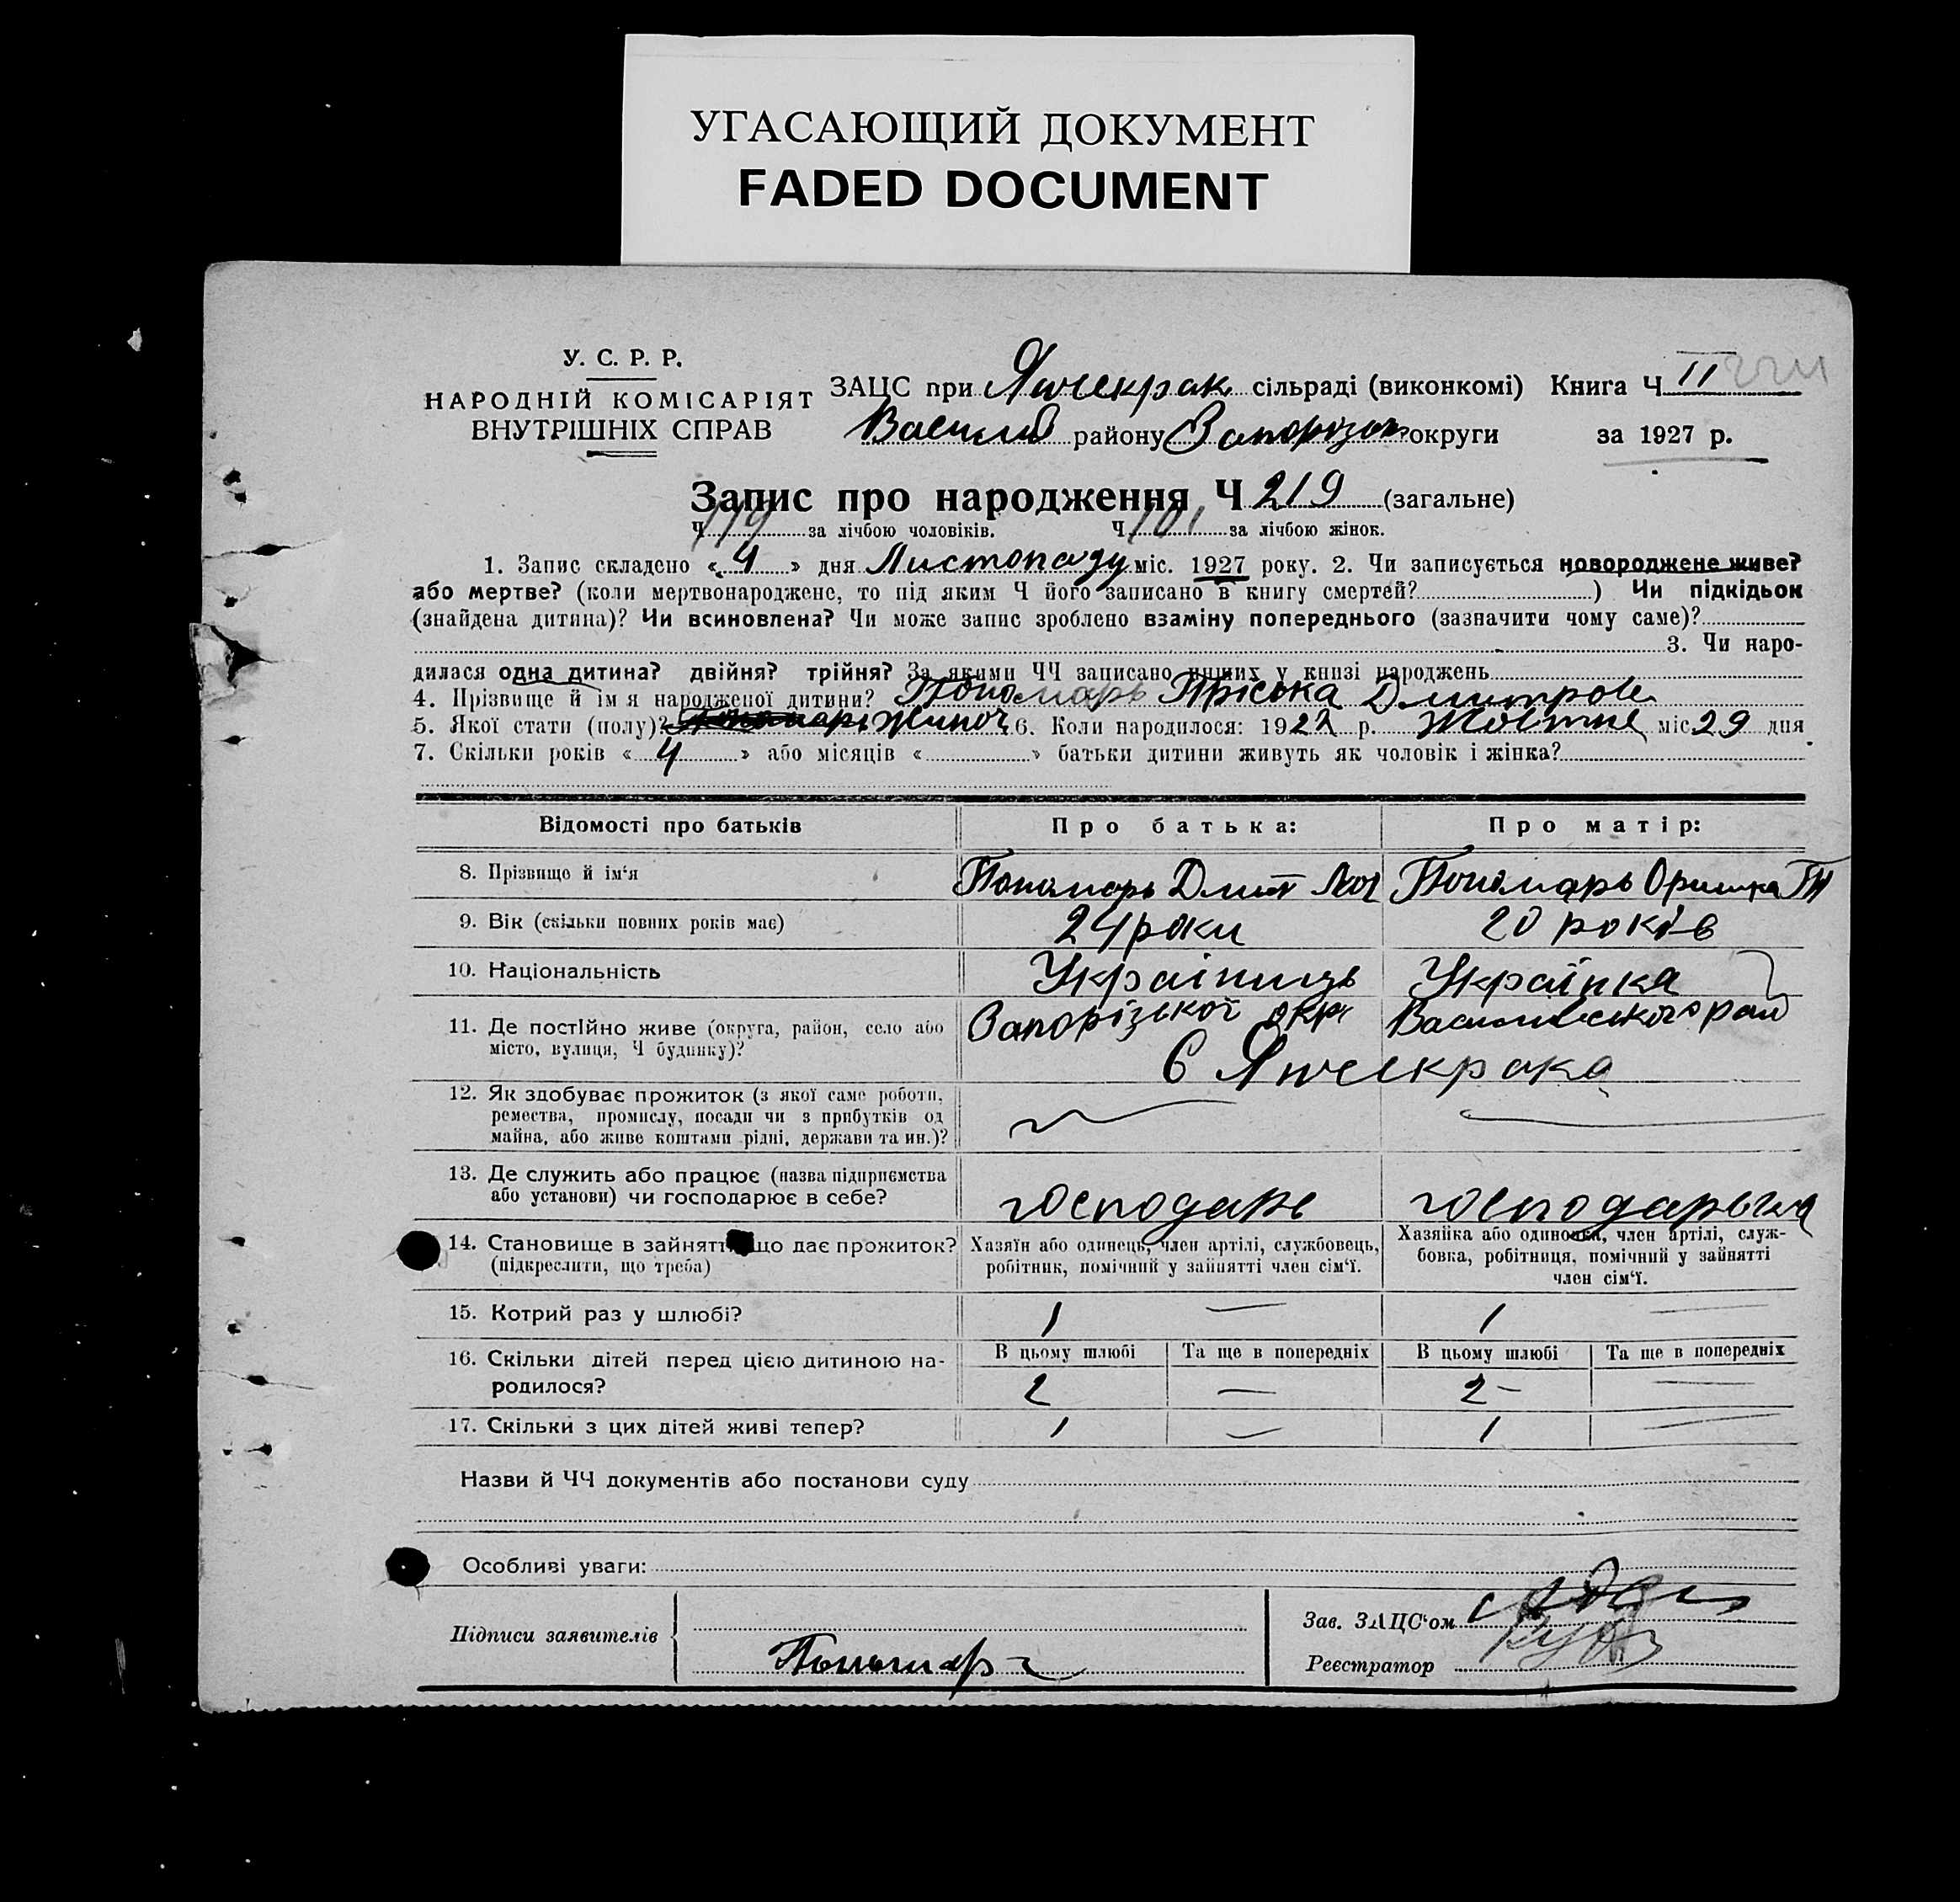 УГАСАЮЩИЙ ДОКУМЕНТ
FADED DOCUMENT
У. С. Р. Р.
НАРОДНІЙ КОМІСАРІЯТ
ВНУТРІШНІХ СПРАВ
ЗАЦС при Янчекрак сільраді (виконкомі) Книга Ч II
Василів району Запорізьк округи за 1927 р.
Запис про народження Ч 219 (загальне)
Ч 119 за лічбою чоловіків. Ч 101 за лічбою жінок.
1. Запис складено « 4 » дня Листопаду міс. 1927 року. 2. Чи записується новороджене живе?
або мертве? (коли мертвонароджене, то під яким Ч його записано в книгу смертей? ) Чи підкідьок
(знайдена дитина)? Чи всиновлена? Чи може запис зроблено взаміну попереднього (зазначити чому саме)?
3. Чи наро-
дилася одна дитина? двійня? трійня? За якими ЧЧ записано инших у книзі народжень
4. Прізвище й ім я народженої дитини? Пономарь Пріська Дмитров
5. Якої стати (полу)? Жіноч 6. Коли народилося: 1927 р. Жовтне міс 29 дня
7. Скільки років « 4 » або місяців « » батьки дитини живуть як чоловік і жінка?
Відомості про батьків Про батька: Про матір:
8. Прізвище й ім'я Пономарь Дмит Пономарь Оришка
9. Вік (скільки повних років має) 24 роки 20 років
10. Національність Українець Українка
11. Де постійно живе (округа, район, село або Запорізської окр Василівського рай
місто, вулиця, Ч будинку)? С Янчекрака
12. Як здобуває прожиток (з якої саме роботи,
ремества, промислу, посади чи з прибутків од
майна, або живе коштами рідні, держави та ин.)?
13. Де служить або працює (назва підприємства
або установи) чи господарює в себе? господарь господарьша
14. Становище в зайнятті, що дає прожиток? Хазяїн або одинець, член артілі, службовець, Хазяйка або одиначка, член артілі, служ-
(підкреслити, що треба) робітник, помічний у зайнятті член сім'ї. бовка, робітниця, помічний у зайнятті
член сім'ї.
15. Котрий раз у шлюбі? 1 — 1 —
16. Скільки дітей перед цією дитиною на- В цьому шлюбі Та ще в попередніх В цьому шлюбі Та ще в попередніх
родилося? 2 — 2 – —
17. Скільки з цих дітей живі тепер? 1 — 1 —
Назви й ЧЧ документів або постанови суду
Особливі уваги:
Підписи заявителів
Пономарь
Зав. ЗАЦС'ом
Реєстратор